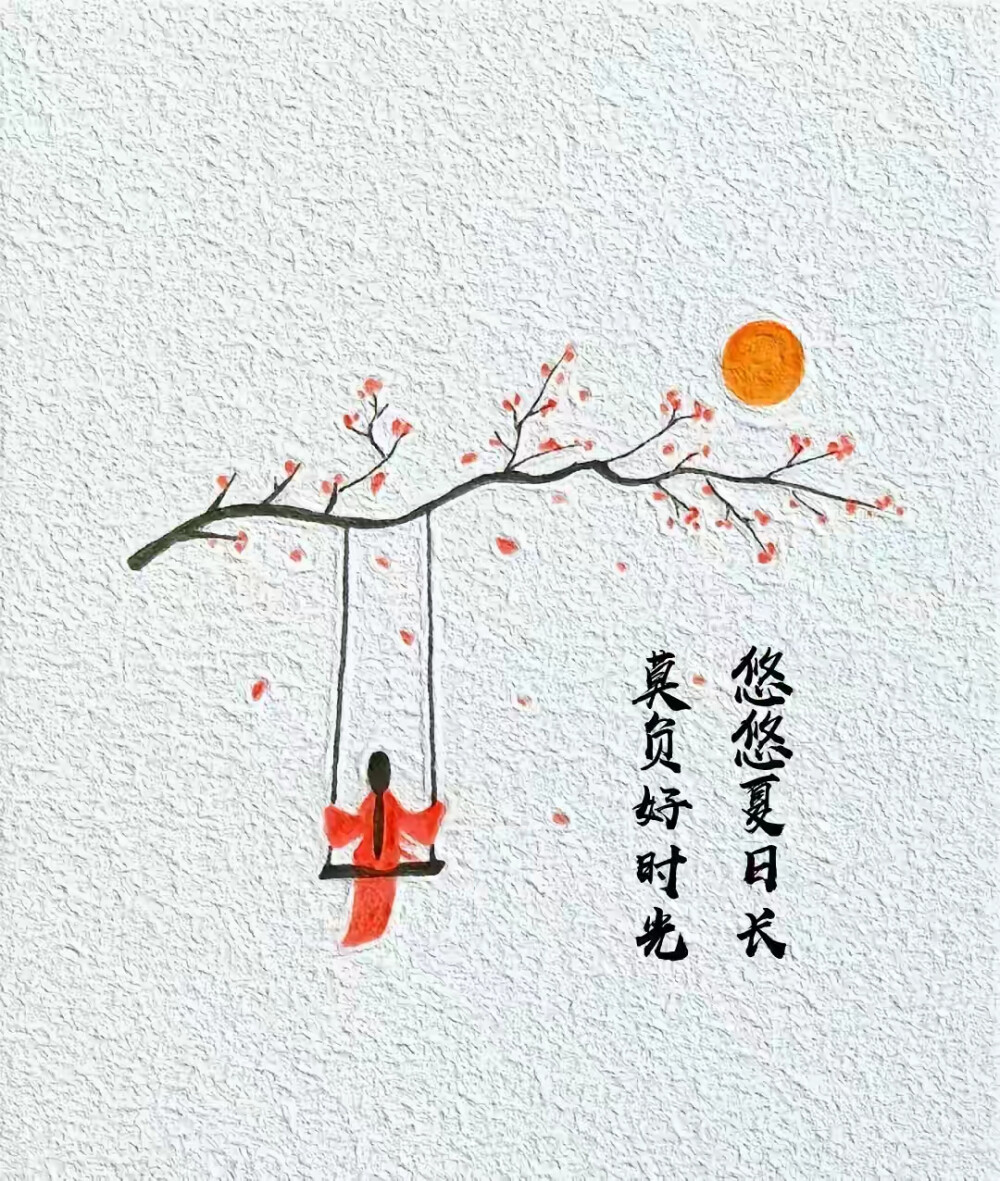 悠悠夏日长
莫负好时光